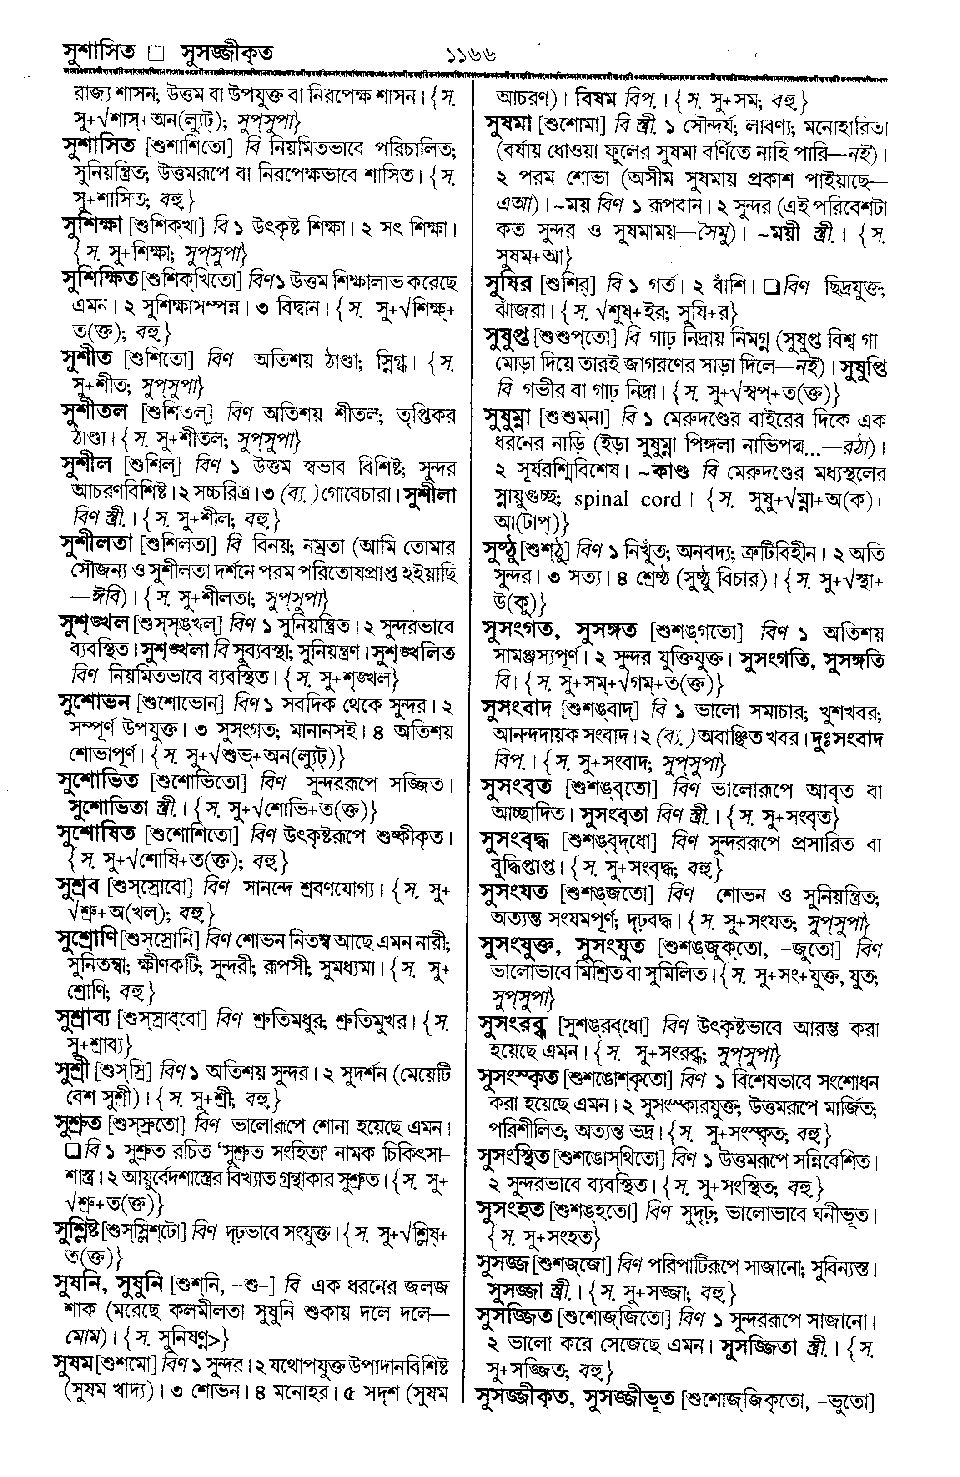 সুশাসিত □ সুসজ্জীকৃত
১১৬৬
রাজ্য শাসন; উত্তম বা উপযুক্ত বা নিরপেক্ষ শাসন। {স.
সু+√শাস্+অন(ল্যুট্); সুপ্‌সুপা}
সুশাসিত [শুশাশিতো] বি নিয়মিতভাবে পরিচালিত;
সুনিয়ন্ত্রিত; উত্তমরূপে বা নিরপেক্ষভাবে শাসিত। {স.
সু+শাসিত; বহু}
সুশিক্ষা [শুশিক্‌খা] বি ১ উৎকৃষ্ট শিক্ষা। ২ সৎ শিক্ষা।
{স. সু+শিক্ষা; সুপ্‌সুপা}
সুশিক্ষিত [শুশিক্‌খিতো] বিণ ১ উত্তম শিক্ষালাভ করেছে
এমন। ২ সুশিক্ষাসম্পন্ন। ৩ বিদ্বান। {স. সু+√শিক্ষ্+
ত(ক্ত); বহু}
সুশীত [শুশিতো] বিণ অতিশয় ঠাণ্ডা; স্নিগ্ধ। {স.
সু+শীত; সুপ্‌সুপা}
সুশীতল [শুশিতল্] বিণ অতিশয় শীতল; তৃপ্তিকর
ঠাণ্ডা। {স. সু+শীতল; সুপ্‌সুপা}
সুশীল [শুশিল্] বিণ ১ উত্তম স্বভাব বিশিষ্ট; সুন্দর
আচরণবিশিষ্ট। ২ সচ্চরিত্র। ৩ (ব্য.) গোবেচারা। সুশীলা
বিণ স্ত্রী.। {স. সু+শীল; বহু}
সুশীলতা [শুশিলতা] বি বিনয়; নম্রতা (আমি তোমার
সৌজন্য ও সুশীলতা দর্শনে পরম পরিতোষপ্রাপ্ত হইয়াছি
—ঈবি)। {স. সু+শীলতা; সুপ্‌সুপা}
সুশৃঙ্খল [শুস্‌সৃঙ্খল্] বিণ ১ সুনিয়ন্ত্রিত। ২ সুন্দরভাবে
ব্যবস্থিত। সুশৃঙ্খলা বি সুব্যবস্থা; সুনিয়ন্ত্রণ। সুশৃঙ্খলিত
বিণ নিয়মিতভাবে ব্যবস্থিত। {স. সু+শৃঙ্খল}
সুশোভন [শুশোভোন্] বিণ ১ সবদিক থেকে সুন্দর। ২
সম্পূর্ণ উপযুক্ত। ৩ সুসংগত; মানানসই। ৪ অতিশয়
শোভাপূর্ণ। {স. সু+√শুভ্+অন(ল্যুট্)}
সুশোভিত [শুশোভিতো] বিণ সুন্দররূপে সজ্জিত।
সুশোভিতা স্ত্রী.। {স. সু+√শোভি+ত(ক্ত)}
সুশোষিত [শুশোশিতো] বিণ উৎকৃষ্টরূপে শুষ্কীকৃত।
{স. সু+√শোষি+ত(ক্ত); বহু}
সুশ্রব [শুস্‌স্রোবো] বিণ সানন্দে শ্রবণযোগ্য। {স. সু+
√শ্রু+অ(খল্); বহু}
সুশ্রোণি [শুস্‌স্রোনি] বিণ শোভন নিতম্ব আছে এমন নারী;
সুনিতম্বা; ক্ষীণকটি; সুন্দরী; রূপসী; সুমধ্যমা। {স. সু+
শ্রোণি; বহু}
সুশ্রাব্য [শুস্‌স্রাব্‌বো] বিণ শ্রুতিমধুর; শ্রুতিমুখর। {স.
সু+শ্রাব্য}
সুশ্রী [শুস্‌স্রি] বিণ ১ অতিশয় সুন্দর। ২ সুদর্শন (মেয়েটি
বেশ সুশ্রী)। {স. সু+শ্রী; বহু}
সুশ্রুত [শুস্‌স্রুতো] বিণ ভালোরূপে শোনা হয়েছে এমন।
❏ বি ১ সুশ্রুত রচিত ‘সুশ্রুত সংহিতা’ নামক চিকিৎসা-
শাস্ত্র। ২ আয়ুর্বেদশাস্ত্রের বিখ্যাত গ্রন্থাকার সুশ্রুত। {স. সু+
√শ্রু+ত(ক্ত)}
সুশ্লিষ্ট [শুস্‌স্লিশ্‌টো] বিণ দৃঢ়ভাবে সংযুক্ত। {স. সু+√শ্লিষ্+
ত(ক্ত)}
সুষনি, সুষুনি [শুশ্‌নি, –শু–] বি এক ধরনের জলজ
শাক (মরেছে কলমীলতা সুষুনি শুকায় দলে দলে—
মোম)। {স. সুনিষণ্ণ>}
সুষম [শুশমো] বিণ ১ সুন্দর। ২ যথোপযুক্ত উপাদানবিশিষ্ট
(সুষম খাদ্য)। ৩ শোভন। ৪ মনোহর। ৫ সদৃশ (সুষম
আচরণ)। বিষম বিপ.। {স. সু+সম; বহু}
সুষমা [শুশোমা] বি স্ত্রী. ১ সৌন্দর্য; লাবণ্য; মনোহারিতা
(বর্ষায় ধোওয়া ফুলের সুষমা বর্ণিতে নাহি পারি—নই)।
২ পরম শোভা (অসীম সুষমায় প্রকাশ পাইয়াছে—
এআ)। ~ময় বিণ ১ রূপবান। ২ সুন্দর (এই পরিবেশটা
কত সুন্দর ও সুষমাময়—সৈমু)। ~ময়ী স্ত্রী.। {স.
সুষম+আ}
সুষির [শুশির্] বি ১ গর্ত। ২ বাঁশি। ❏ বিণ ছিদ্রযুক্ত;
ঝাঁজরা। {স. √শুষ্+ইর; সুষি+র}
সুষুপ্ত [শুশুপ্‌তো] বি গাঢ় নিদ্রায় নিমগ্ন (সুষুপ্ত বিশ্ব গা
মোড়া দিয়ে তারই জাগরণের সাড়া দিলে—নই)। সুষুপ্তি
বি গভীর বা গাঢ় নিদ্রা। {স. সু+√স্বপ্+ত(ক্ত)}
সুষুম্না [শুশুমনা] বি ১ মেরুদণ্ডের বাইরের দিকে এক
ধরনের নাড়ি (ইড়া সুষুম্না পিঙ্গলা নাভিপদ্ম...—রঠা)।
২ সূর্যরশ্মিবিশেষ। ~কাণ্ড বি মেরুদণ্ডের মধ্যস্থলের
স্নায়ুগুচ্ছ; spinal cord। {স. সুষু+√ম্না+অ(ক)।
আ(টাপ্)}
সুষ্ঠু [শুশ্‌ঠু] বিণ ১ নিখুঁত; অনবদ্য; ত্রুটিবিহীন। ২ অতি
সুন্দর। ৩ সত্য। ৪ শ্রেষ্ঠ (সুষ্ঠু বিচার)। {স. সু+√স্থা+
উ(কু)}
সুসংগত, সুসঙ্গত [শুশঙ্‌গতো] বিণ ১ অতিশয়
সামঞ্জস্যপূর্ণ। ২ সুন্দর যুক্তিযুক্ত। সুসংগতি, সুসঙ্গতি
বি। {স. সু+সম্+√গম্+ত(ক্ত)}
সুসংবাদ [শুশঙ্‌বাদ্] বি ১ ভালো সমাচার; খুশখবর;
আনন্দদায়ক সংবাদ। ২ (ব্য.) অবাঞ্ছিত খবর। দুঃসংবাদ
বিপ.। {স. সু+সংবাদ; সুপ্‌সুপা}
সুসংবৃত [শুশঙ্‌বৃতো] বিণ ভালোরূপে আবৃত বা
আচ্ছাদিত। সুসংবৃতা বিণ স্ত্রী.। {স. সু+সংবৃত}
সুসংবৃদ্ধ [শুশঙ্‌বৃদ্‌ধো] বিণ সুন্দররূপে প্রসারিত বা
বৃদ্ধিপ্রাপ্ত। {স. সু+সংবৃদ্ধ; বহু}
সুসংযত [শুশঙ্‌জতো] বিণ শোভন ও সুনিয়ন্ত্রিত;
অত্যন্ত সংযমপূর্ণ; দৃঢ়বদ্ধ। {স. সু+সংযত; সুপ্‌সুপা}
সুসংযুক্ত, সুসংযুত [শুশঙ্‌জুক্‌তো, –জুতো] বিণ
ভালোভাবে মিশ্রিত বা সুমিলিত। {স. সু+সং+যুক্ত, যুত;
সুপ্‌সুপা}
সুসংরব্ধ [সুশঙ্‌রব্‌ধো] বিণ উৎকৃষ্টভাবে আরম্ভ করা
হয়েছে এমন। {স. সু+সংরব্ধ; সুপ্‌সুপা}
সুসংস্কৃত [শুশঙ্‌শ্‌কৃতো] বিণ ১ বিশেষভাবে সংশোধন
করা হয়েছে এমন। ২ সুসংস্কারযুক্ত; উত্তমরূপে মার্জিত;
পরিশীলিত; অত্যন্ত ভদ্র। {স. সু+সংস্কৃত; বহু}
সুসংস্থিত [শুশঙোস্‌থিতো] বিণ ১ উত্তমরূপে সন্নিবেশিত।
২ সুন্দরভাবে ব্যবস্থিত। {স. সু+সংস্থিত; বহু}
সুসংহত [শুশঙ্‌হতো] বিণ সুদৃঢ়; ভালোভাবে ঘনীভূত।
{স. সু+সংহত}
সুসজ্জ [শুশজ্‌জো] বিণ পরিপাটিরূপে সাজানো; সুবিন্যস্ত।
সুসজ্জা স্ত্রী.। {স. সু+সজ্জা; বহু}
সুসজ্জিত [শুশোজ্‌জিতো] বিণ ১ সুন্দররূপে সাজানো।
২ ভালো করে সেজেছে এমন। সুসজ্জিতা স্ত্রী.। {স.
সু+সজ্জিত; বহু}
সুসজ্জীকৃত, সুসজ্জীভূত [শুশোজ্‌জিকৃতো, –ভুতো]